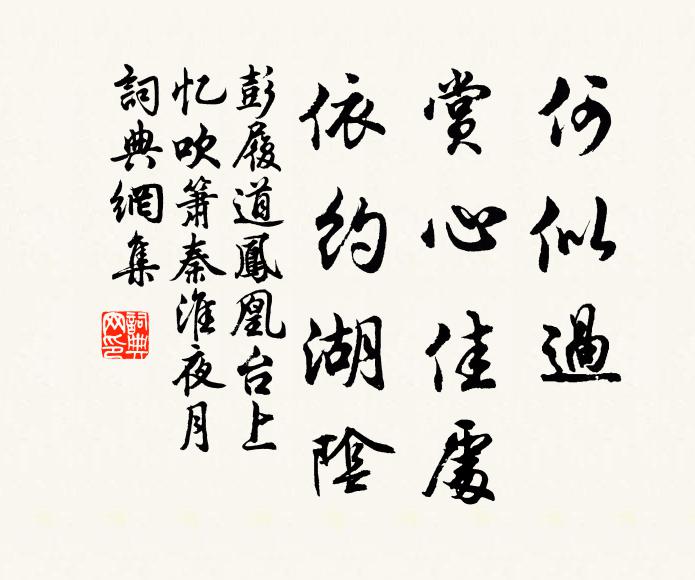 何似過
賞心佳處
依約湖陰
彭履道鳳凰台上
忆吹簫秦淮夜月
詞典網集
詞典网印